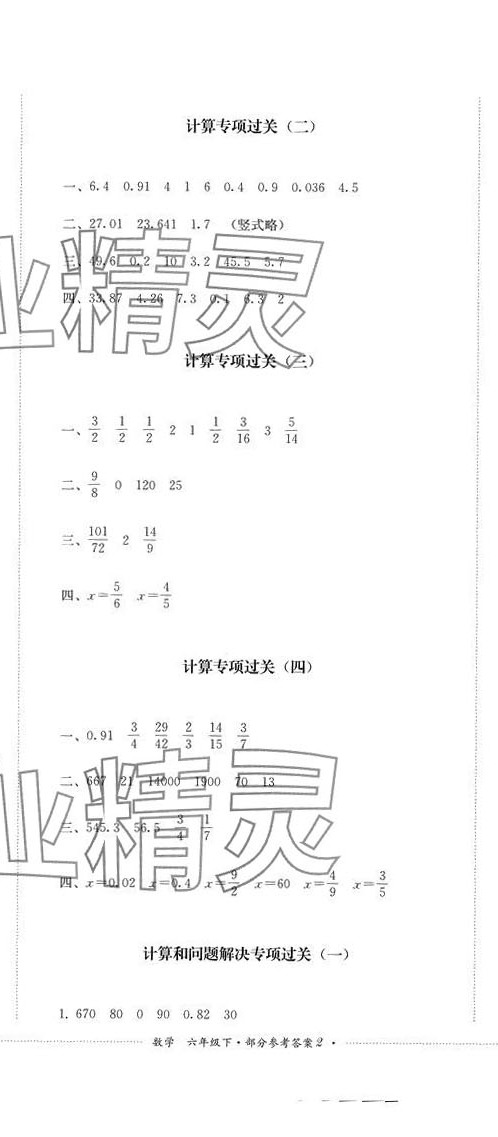 计算专项过关（二）
一、6.4 0.91 4 1 6 0.4 0.9 0.036 4.5
二、27.01 23.641 1.7 （竖式略）
三、49.6 0.2 10 3.2 45.5 5.7
四、33.87 4.26 7.3 0.1 6.3 2
计算专项过关（三）
一、3/2 1/2 1/2 2 1 1/2 3/16 3 5/14
二、9/8 0 120 25
三、101/72 2 14/9
四、x=5/6 x=4/5
计算专项过关（四）
一、0.91 3/4 29/42 2/3 14/15 3/7
二、667 21 14000 1900 70 13
三、545.3 56.5 3/4 1/7
四、x=0.02 x=0.4 x=9/2 x=60 x=4/9 x=3/5
计算和问题解决专项过关（一）
1. 670 80 0 90 0.82 30
数学 六年级下·部分参考答案2·
业精灵
业精灵